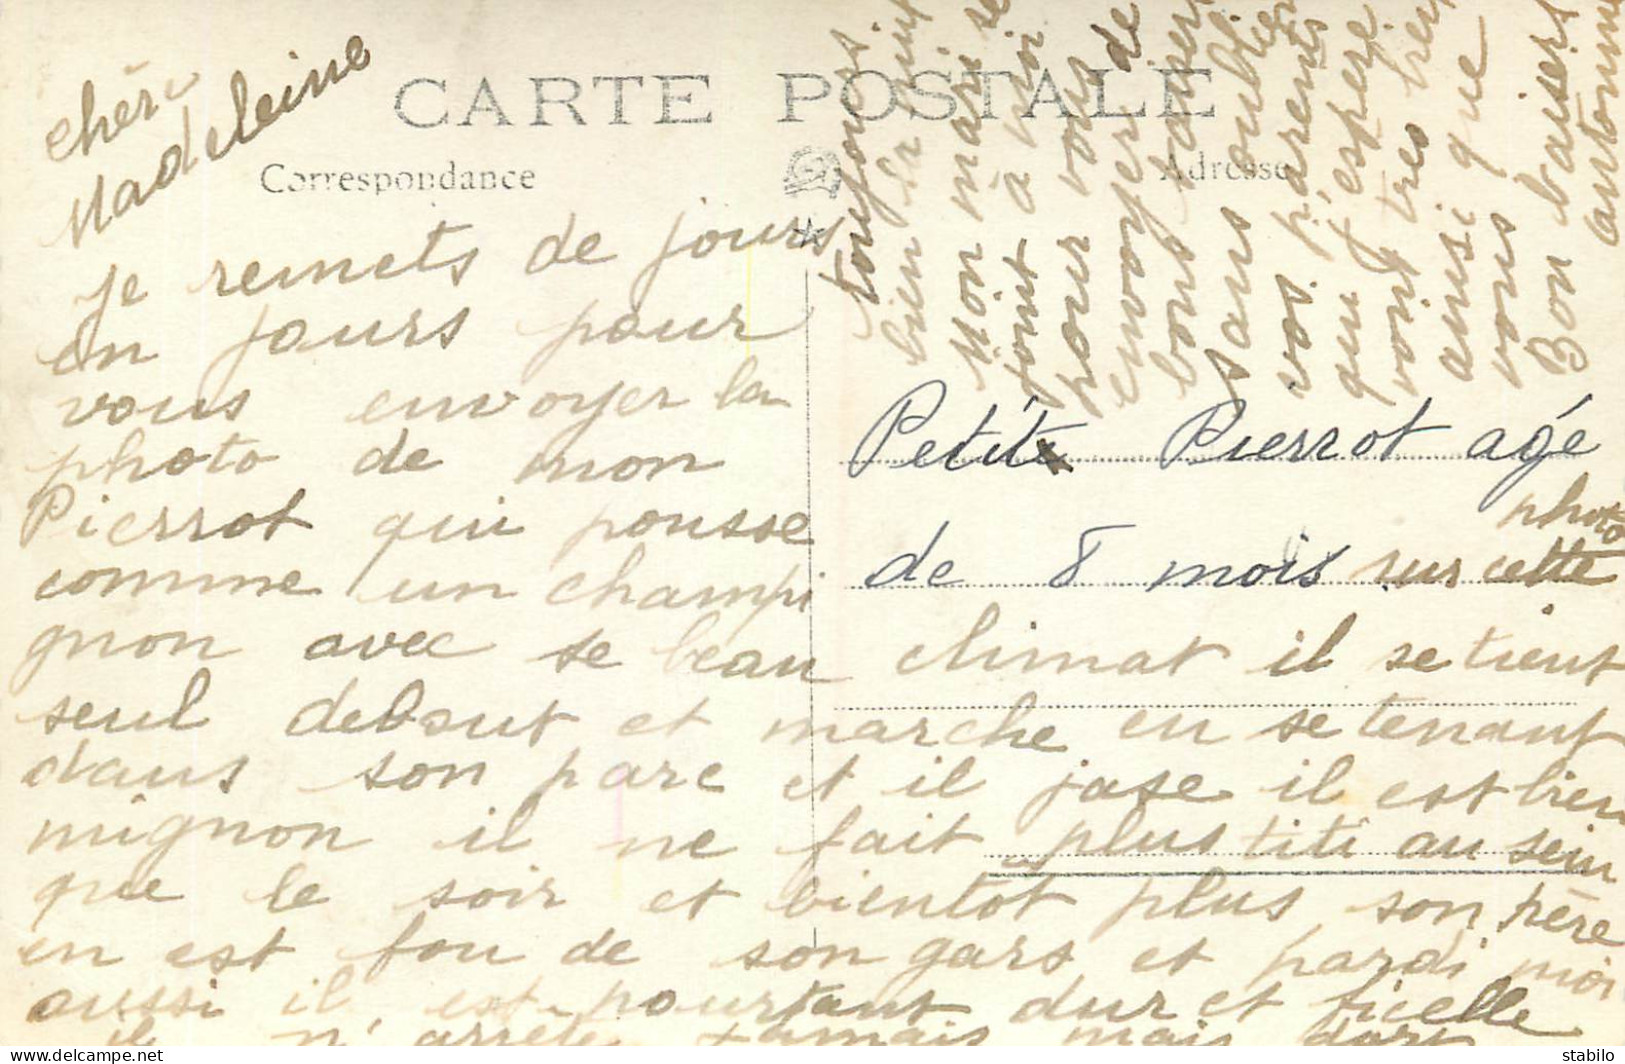 CARTE POSTALE
Correspondance
Adresse
chère
Madeleine
je remets de jours
en jours pour
vous envoyer la
photo de mon
Pierrot qui pousse
comme un champi
gnon avec se beau climat il se tient
seul debout et marche en se tenant
dans son parc et il jase il est bien
mignon il ne fait plus titi au sein
que le soir et bientot plus son père
en est fou de son gars et pardi moi
aussi il est pourtant dur et ficelle
il n'arrête jamais mais dort
toujours
bien la nuit
Mon mari se
joint à moi
pour vous
envoyer de
bons baisers
sans oublier
vos parents
qui j'espère
vont tres bien
ainsi que
vous
Bon baisers
antonine
Petite Pierrot agé
de 8 mois sur cette
photo
stabilo